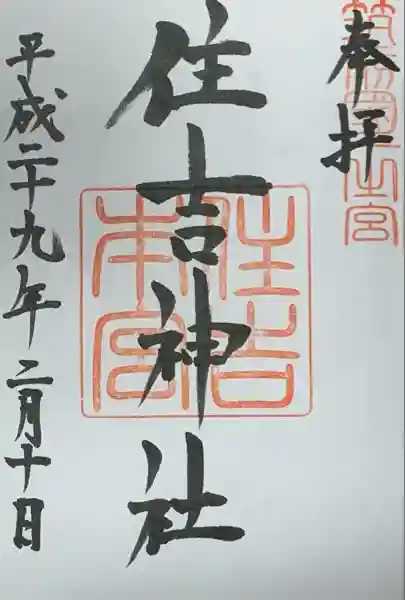 奉拝
筑前國一之宮
住吉神社
住吉本宮
平成二十九年二月十日